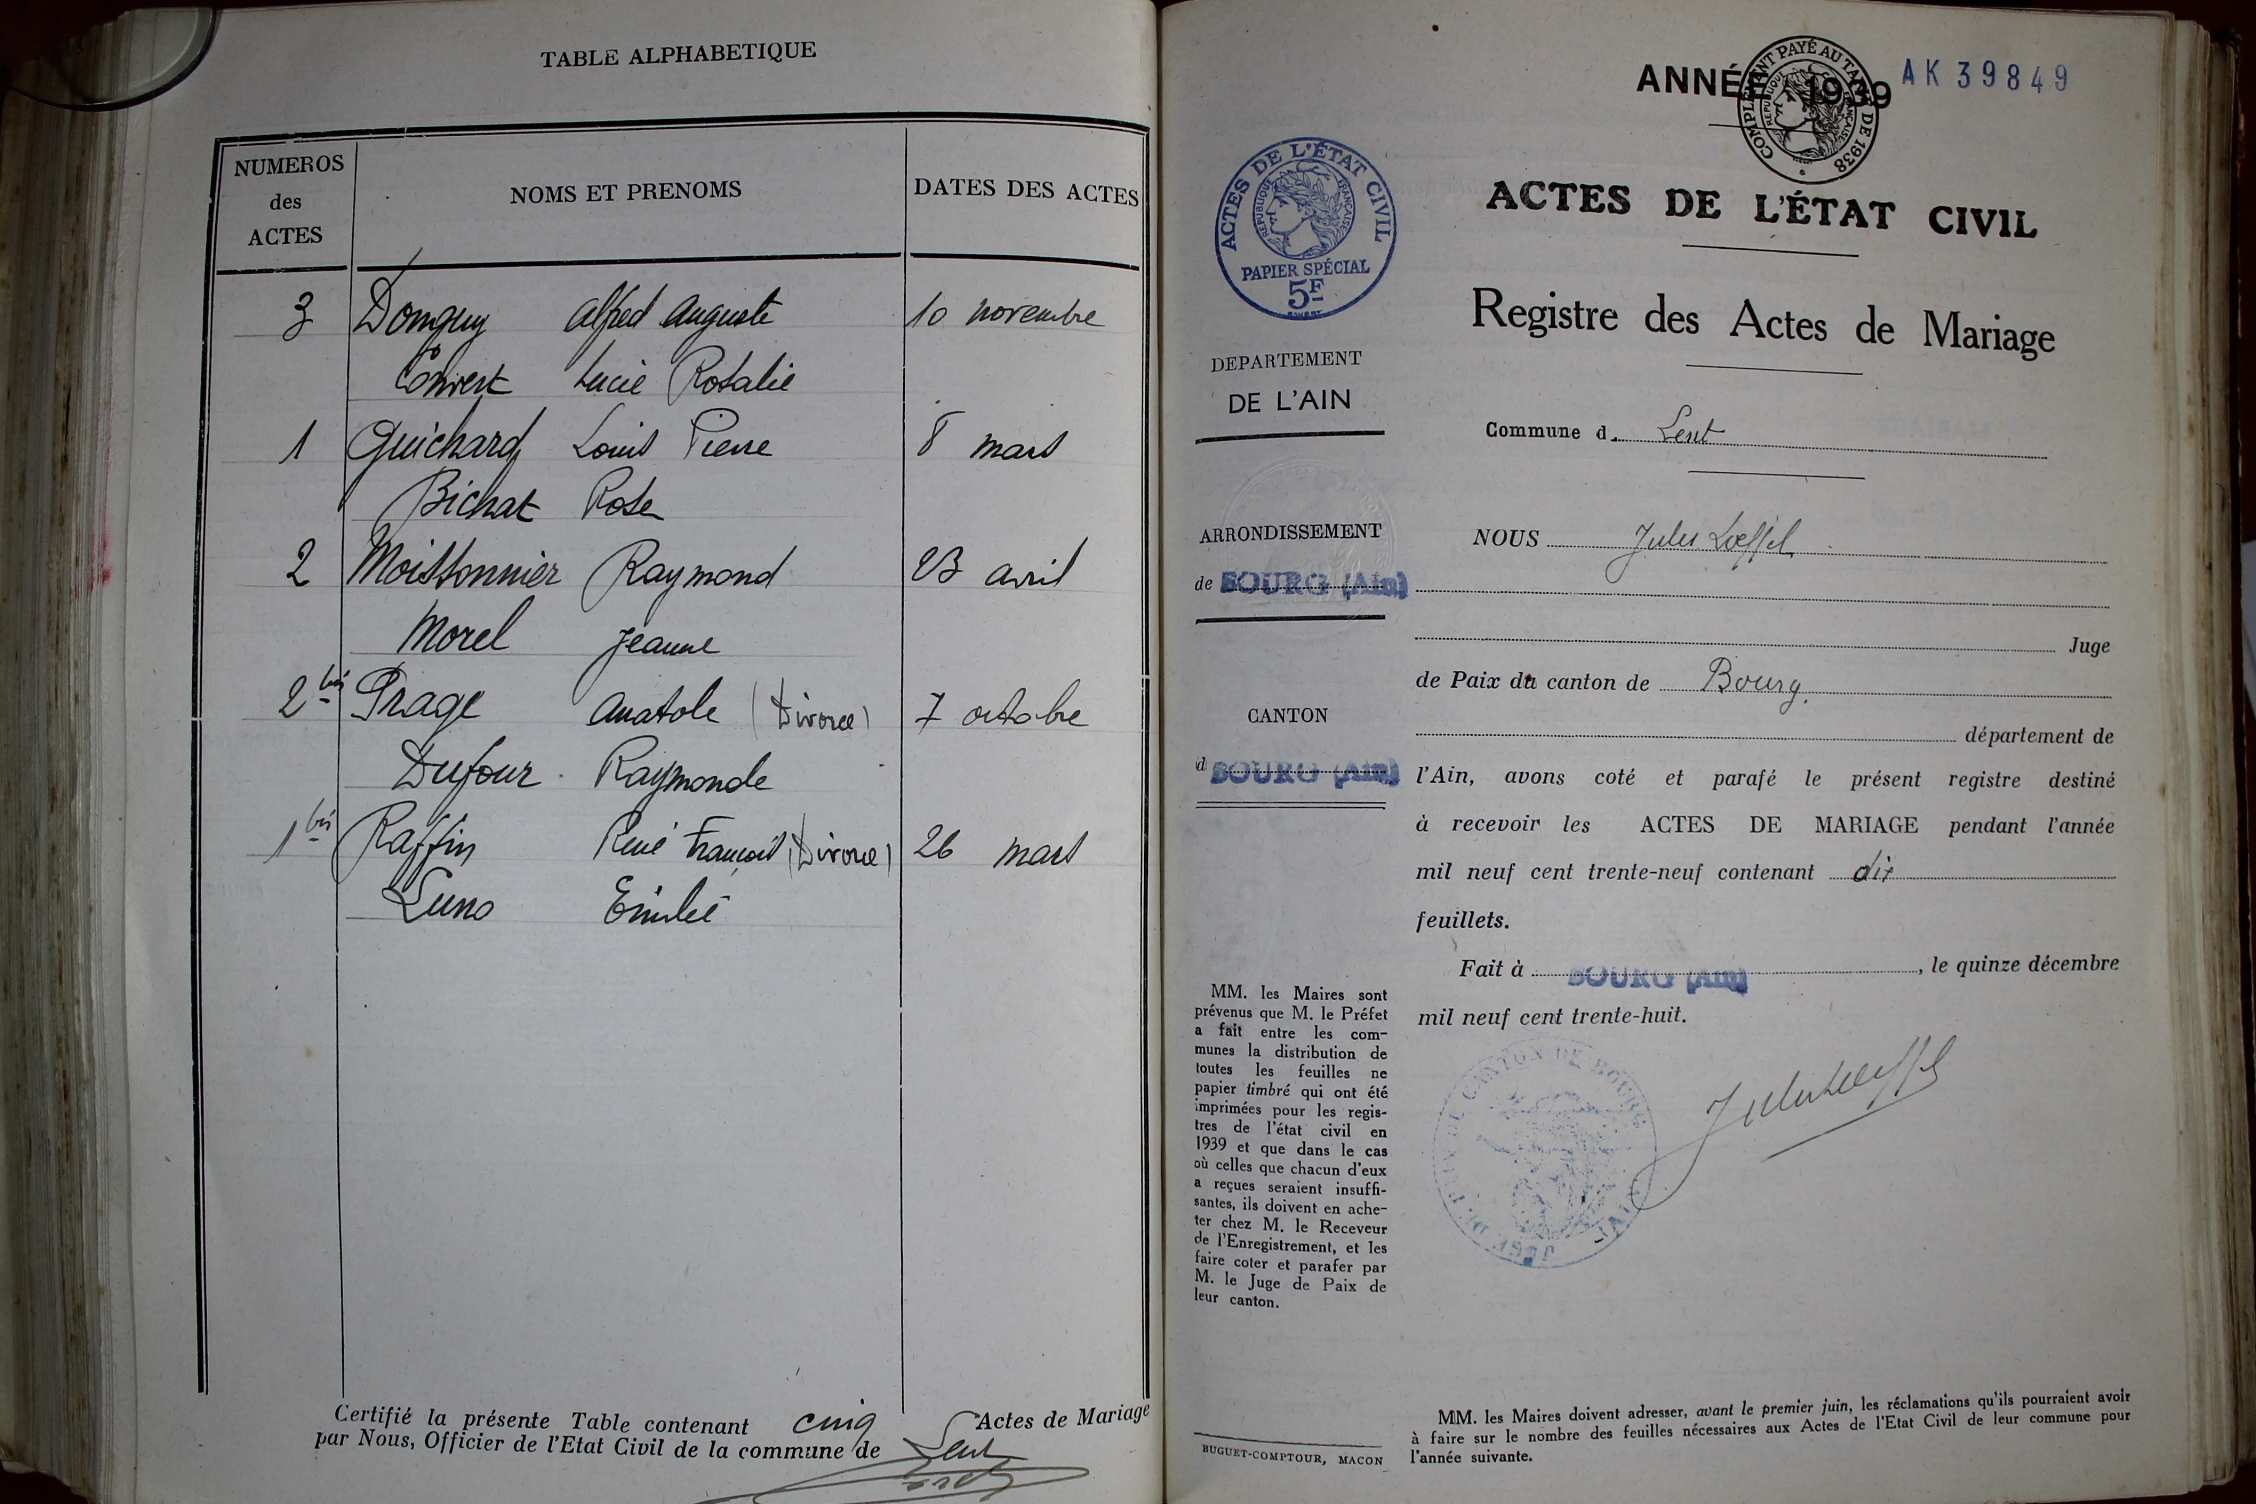 TABLE ALPHABETIQUE
NUMEROS des ACTES
NOMS ET PRENOMS
DATES DES ACTES
3 Domguy Alfred Auguste 10 novembre
Convert Lucie Rosalie
1 Guichard Louis Pierre 8 mars
Bichat Rose
2 Moissonnier Raymond 23 avril
Morel Jeanne
2 bis Prage Anatole (Divorce) 7 octobre
Dufour Raymonde
1 bis Raffin René François (Divorce) 26 mars
Luno Emilie
Certifié la présente Table contenant cinq Actes de Mariage
par Nous, Officier de l'Etat Civil de la commune de Lent
ANNÉE 1939
AK 39849
COMPLEMENT PAYÉ AU TARIF DE 1938
REPUBLIQUE FRANÇAISE
ACTES DE L'ÉTAT CIVIL
REPUBLIQUE FRANÇAISE
PAPIER SPÉCIAL
5F
DEPARTEMENT
DE L'AIN
ARRONDISSEMENT
de BOURG (Ain)
CANTON
d BOURG (Ain)
MM. les Maires sont
prévenus que M. le Préfet
a fait entre les com-
munes la distribution de
toutes les feuilles ne
papier timbré qui ont été
imprimées pour les regis-
tres de l'état civil en
1939 et que dans le cas
où celles que chacun d'eux
a reçues seraient insuffi-
santes, ils doivent en ache-
ter chez M. le Receveur
de l'Enregistrement, et les
faire coter et parafer par
M. le Juge de Paix de
leur canton.
BUGUET-COMPTOUR, MACON
ACTES DE L'ÉTAT CIVIL
Registre des Actes de Mariage
Commune d Lent
NOUS Jules Loeffel
Juge
de Paix du canton de Bourg
département de
l'Ain, avons coté et parafé le présent registre destiné
à recevoir les ACTES DE MARIAGE pendant l'année
mil neuf cent trente-neuf contenant dix
feuillets.
Fait à BOURG (Ain), le quinze décembre
mil neuf cent trente-huit.
CANTON DE BOURG
Jules Loeffel
MM. les Maires doivent adresser, avant le premier juin, les réclamations qu'ils pourraient avoir
à faire sur le nombre des feuilles nécessaires aux Actes de l'Etat Civil de leur commune pour
l'année suivante.